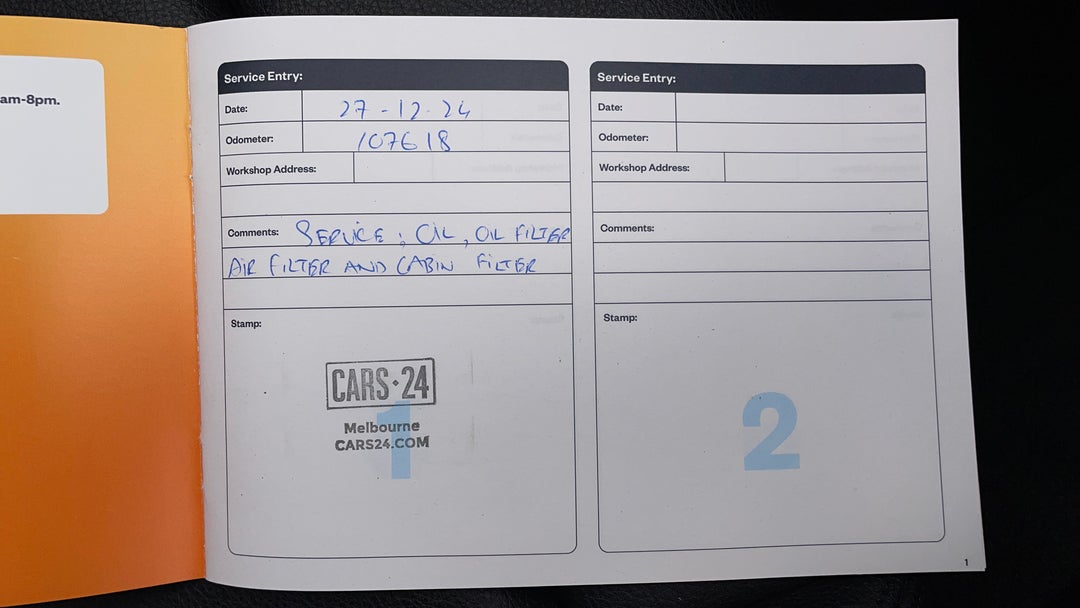 am-8pm.
Service Entry:
Date: 27-12-24
Odometer: 107618
Workshop Address:
Comments: SERVICE: OIL, OIL FILTER
AIR FILTER AND CABIN FILTER
Stamp:
CARS·24
1
Melbourne
CARS24.COM
Service Entry:
Date:
Odometer:
Workshop Address:
Comments:
Stamp:
2
1